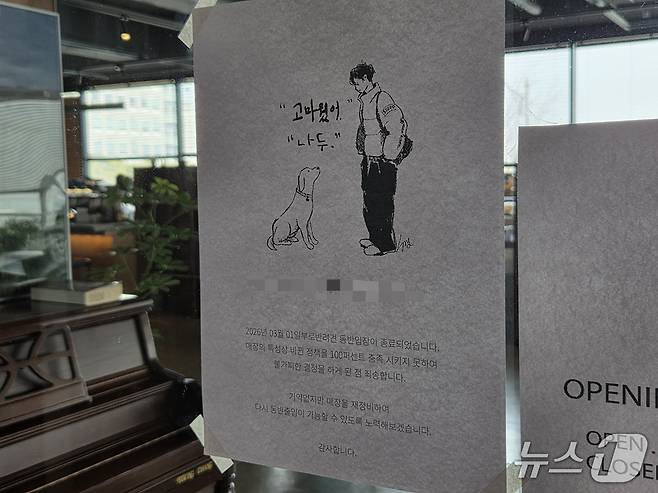 "고마웠어."
"나두."
2026년 03월 01일부로반려견 동반입장이 종료되었습니다.
매장의 특성상 바뀐 정책을 100퍼센트 충족 시키지 못하여
불가피한 결정을 하게 된 점 죄송합니다.
기약없지만 매장을 재정비하여
다시 동반출입이 가능할 수 있도록 노력해보겠습니다.
감사합니다.
OPENI
OPEN .
CLOSE
뉴스1